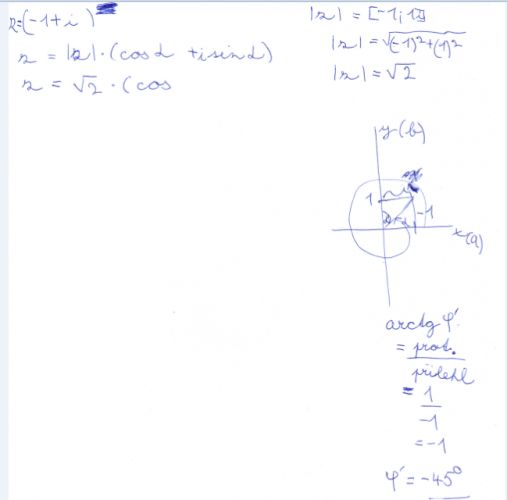 z=(-1+i)
z = |z|·(cosα + i sinα)
z = √2 · (cos
|z| = [-1; 1]
|z| = √(-1)²+(1)²
|z| = √2
y(b)
1
-1
x(a)
arctg φ'
= prot.
přilehl
= 1
-1
= -1
φ' = -45°